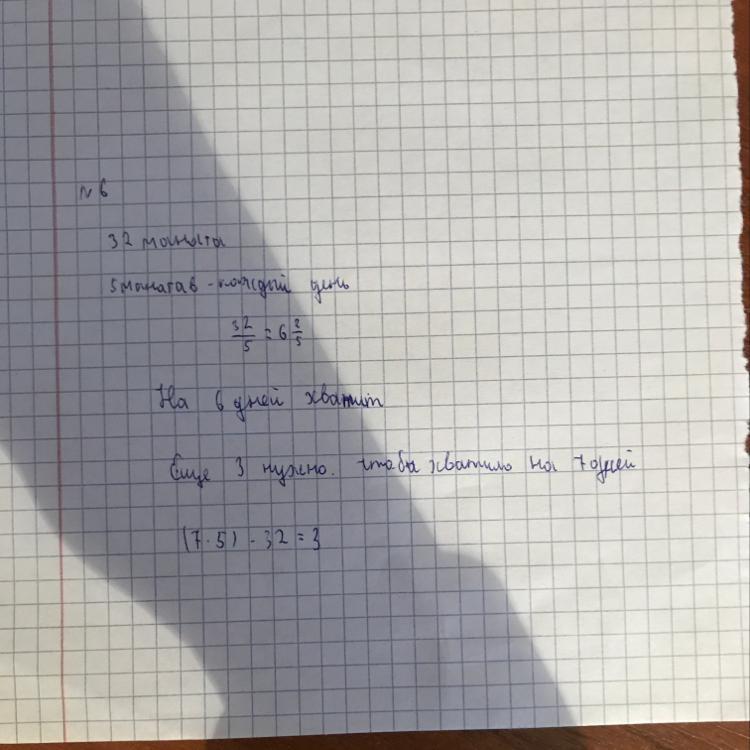 № 6
32 маната
5 манатав - каждый день
32/5 = 6 2/5
На 6 дней хватит
Еще 3 нужно. чтобы хватило на 7 дней
(7 · 5) - 32 = 3